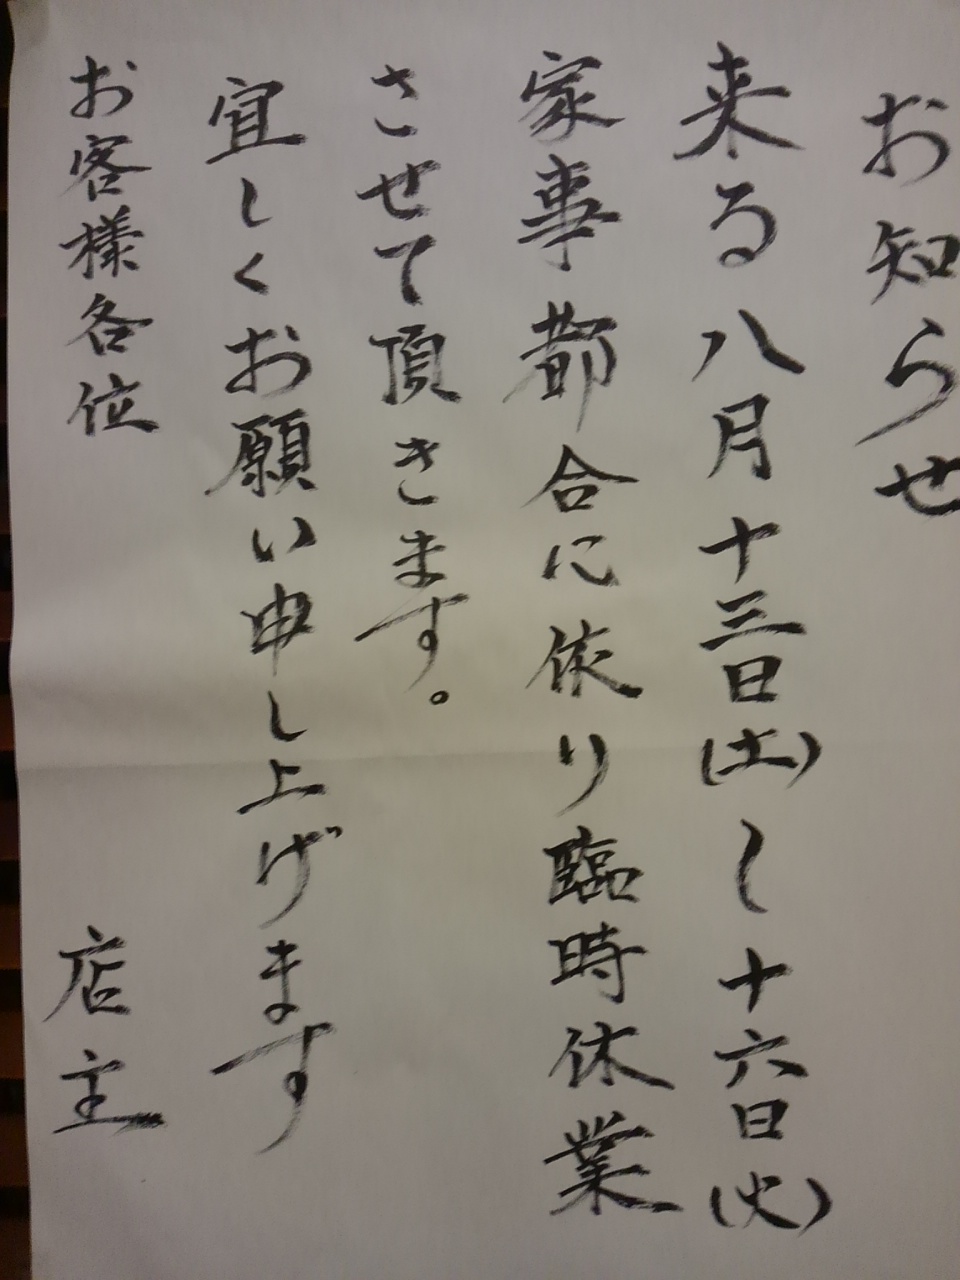 お知らせ
来る八月十三日(土)〜十六日(火)
家事都合に依り臨時休業
させて頂きます。
宜しくお願い申し上げます
お客様各位
店主